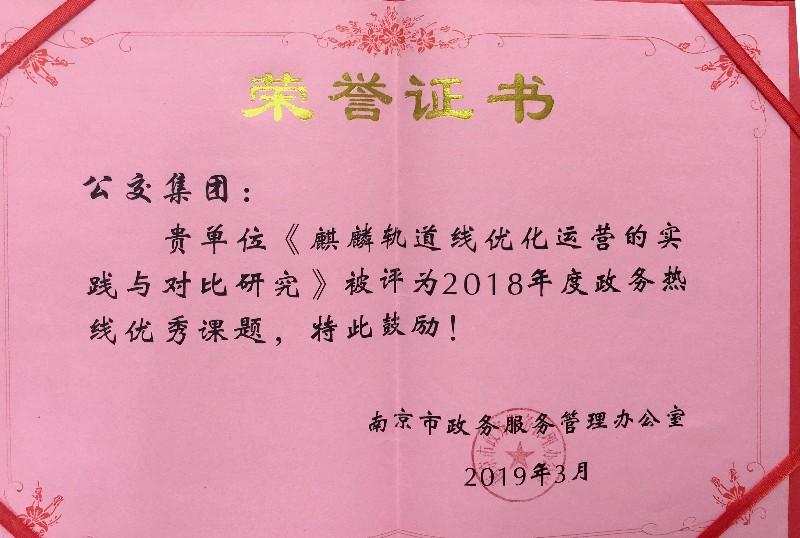 荣誉证书
公交集团：
贵单位《麒麟轨道线优化运营的实
践与对比研究》被评为2018年度政务热
线优秀课题，特此鼓励！
南京市政务服务管理办公室
2019年3月